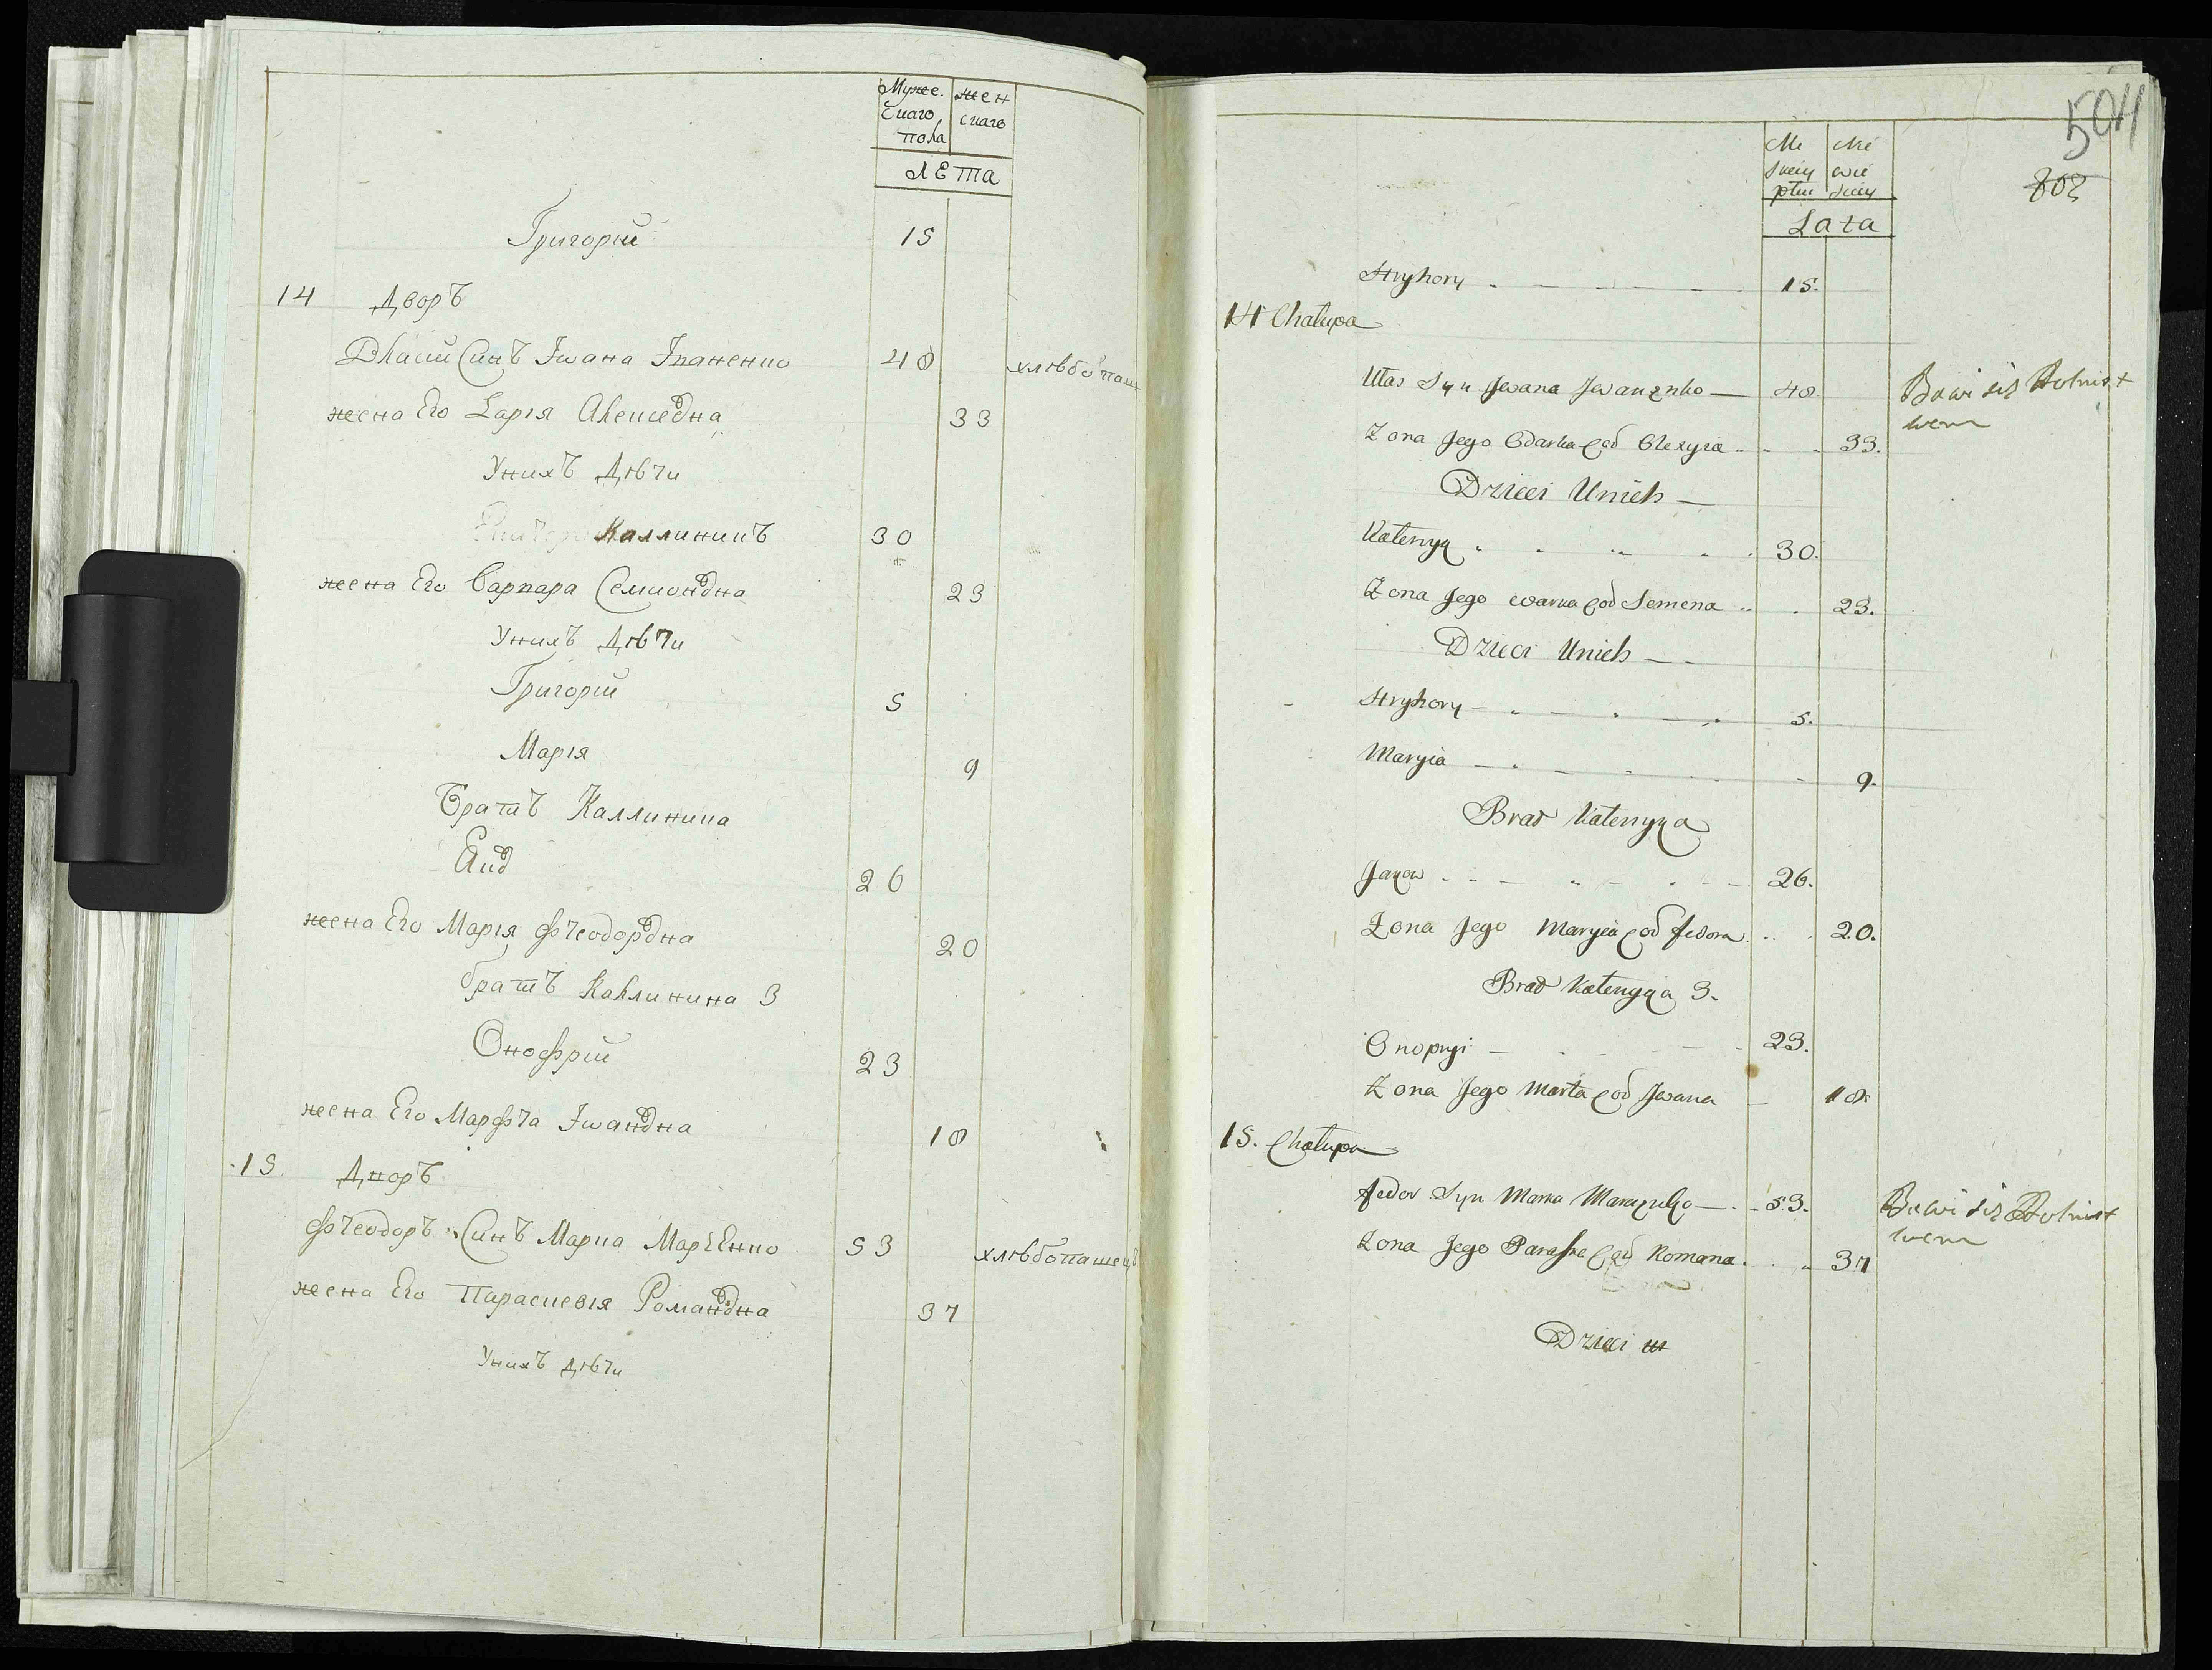 Мужес.
скаго
пола
жен
скаго
ЛЕта
Григорій 15
14 Дворъ
Власій Синъ Івана Іваненко 48 хлѣбопаш
жена Его Дарія Алексѣевна 33
Унихъ Дѣти
Каллиникъ 30
жена Его Варвара Семионовна 23
Унихъ Дѣти
Григорій 5
Марія 9
Братъ Каллиника
Яков 26
жена Его Марія Ѳеодоровна 20
братъ Каллиника 3
Онофрій 23
жена Его Марѳа Івановна 18
15 Дворъ
Ѳеодоръ Синъ Марка Марченко 53 хлѣбопашецъ
жена Его Параскевія Романовна 37
Унихъ дѣти
504
802
Mę
skiey
płci
Nie
wie
sciey
Lata
Hryhory 15.
14 Chałupa
Ułas Syn Jwana Jwanenko 48. Bawi się Rolnist
wem
Zona Jego Odarka cod Olexyia 33.
Dzieci Unich
Kałenyq 30.
Zona Jego warka cod Semena 23.
Dzieci Unich
Hryhory 5.
Maryia 9.
Brat Kałenyqa
Jaqow 26.
Zona Jego Maryia cod fedora 20.
Brat Kałenyqa 3.
Onopryi 23.
Zona Jego Marta cod Jwana 18.
15. Chałupa
fedor Syn Marka Marczenko 53. Bawi się Rolnist
wem
Zona Jego Paraska cod Romana 37
Dzieci